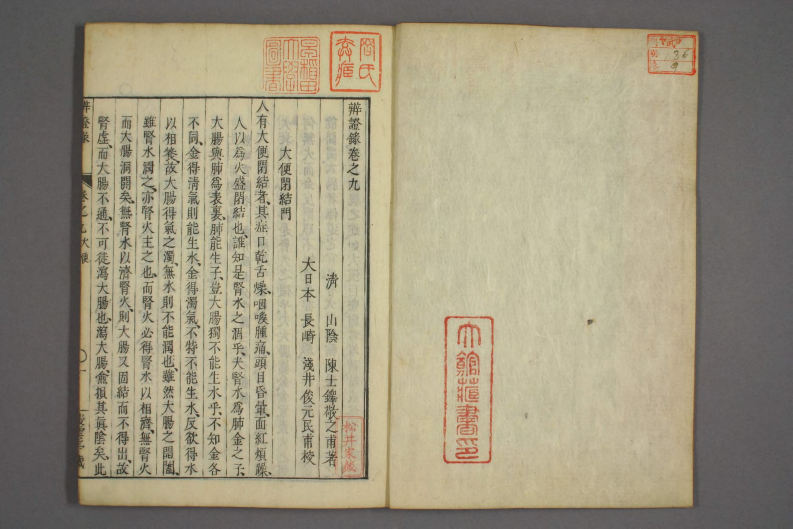 辨證錄卷之九
清 山陰 陳士鐸敬之甫著
大日本 長崎 淺井俊元民甫校
大便閉結門
人有大便閉結者、其症口乾舌燥、咽喉腫痛、頭目昏暈、面紅煩躁、
人以爲火盛閉結也、誰知是腎水之涸乎、夫腎水爲肺金之子、
大腸與肺爲表裏、肺能生子、豈大腸獨不能生水乎、不知金各
不同、金得淸氣則能生水、金得濁氣、不特能生水、反欲得水
以相養、故大腸得氣之濁、無水則不能潤也、雖然大腸之開闔、
雖腎水潤之、亦腎火主之也、而腎火必得腎水以相濟、無腎火
而大腸洞開矣、無腎水以濟腎火、則大腸又固結而不得出、故
腎虛、而大腸不通、不可徒瀉大腸也、瀉大腸、愈損其眞陰矣、此
辨證錄
卷之九
松井家藏